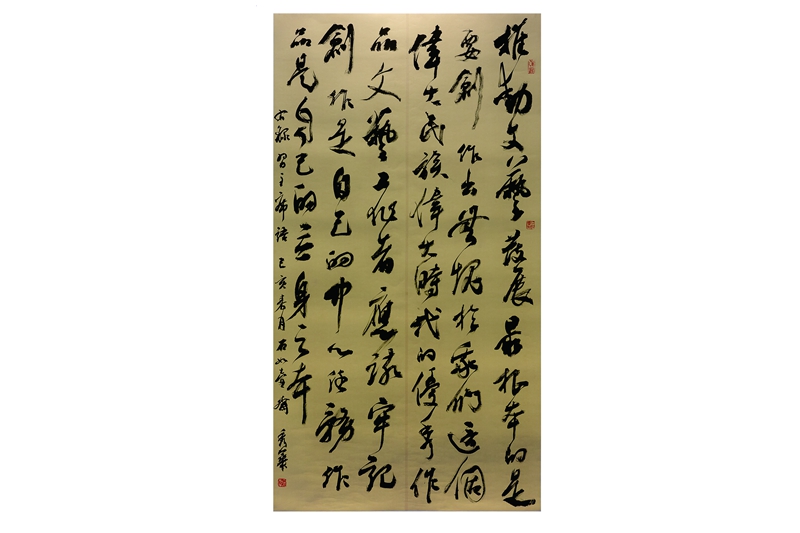 推動文藝發展最根本的是
要創作出無愧於我們這個
偉大民族偉大時代的優秀作
品文藝工作者應該牢記
創作是自己的中心任務作
品是自己的立身之本
錄習主席語己亥春月石